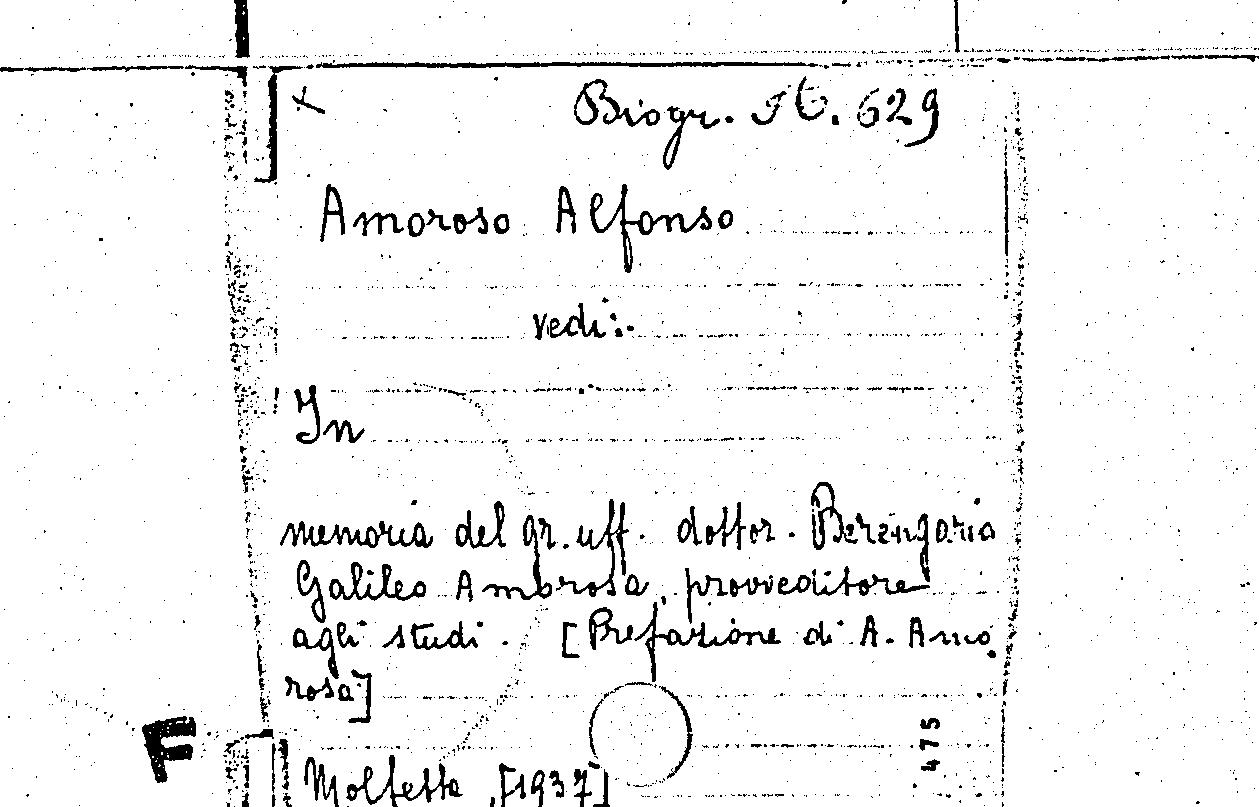 x Biogr. It. 629
Amoroso Alfonso
vedi:.
In
memoria del gr. uff. dottor. Berengario
Galileo Ambrosa, provveditore
agli studi. [Prefazione di A. Amo.
rosa]
F
475
Molfetta, [1937]